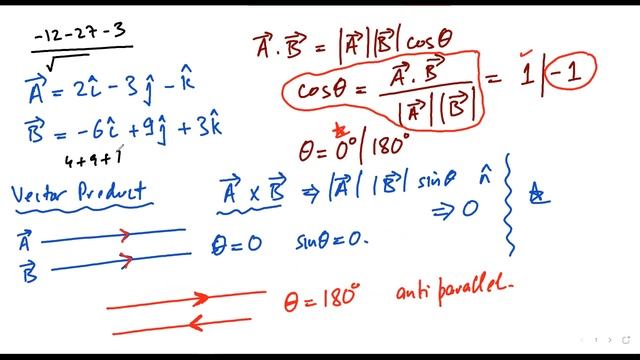 -12-27-3
√
A⃗ = 2î - 3ĵ - k̂
B⃗ = -6î + 9ĵ + 3k̂
4+9+1
A⃗ . B⃗ = |A⃗| |B⃗| cosθ
cosθ = A⃗ . B⃗ / |A⃗| |B⃗| = 1 | -1
θ = 0° | 180°
Vector Product
A⃗ x B⃗ ⇒ |A⃗| |B⃗| sinθ n̂
⇒ 0
A⃗
B⃗
θ = 0 sinθ = 0.
θ = 180° anti parallel.